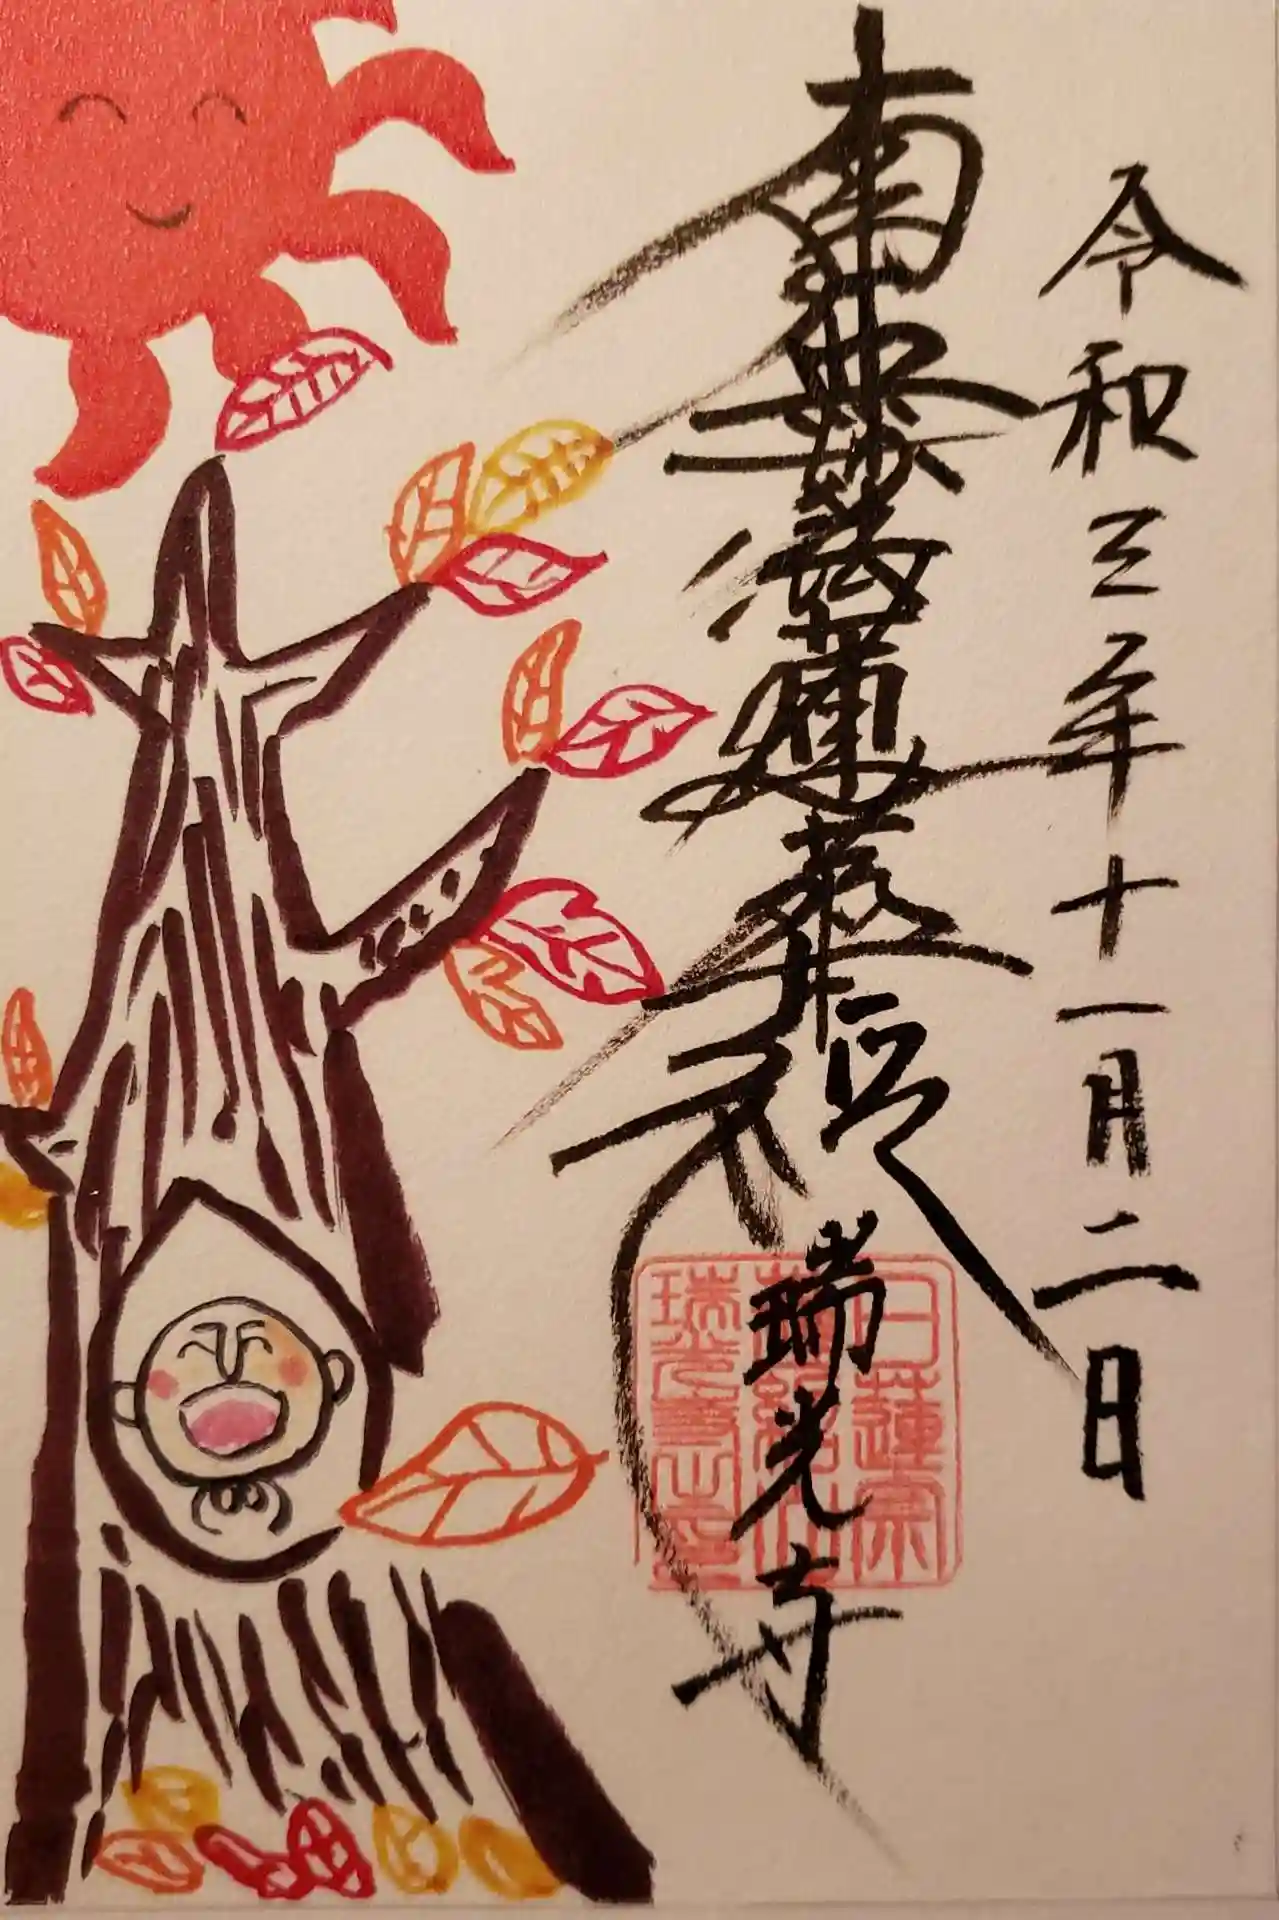 令和三年十一月二日
南無妙法蓮華経
瑞光寺
日蓮宗